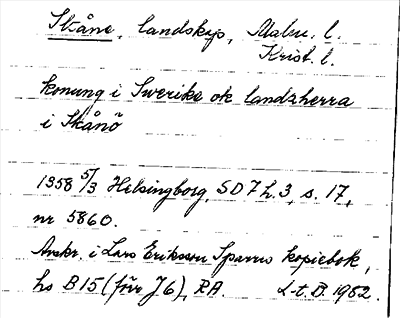 Skåne, landskap, Malm. l.
Krist. l.
konung i Swerike ok landzherra
i Skånö
1358 5/3 Helsingborg, SD 7 h. 3, s. 17,
nr 5860.
Avskr. i Lars Erikssons Sparres kopiebok,
hs B 15 (förr J 6), RA. L. t. B. 1982.